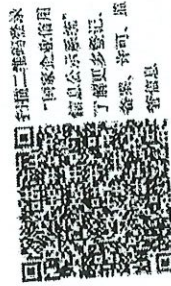 扫描二维码登录
"国家企业信用
信息公示系统"
了解更多登记、
备案、许可、监
管信息